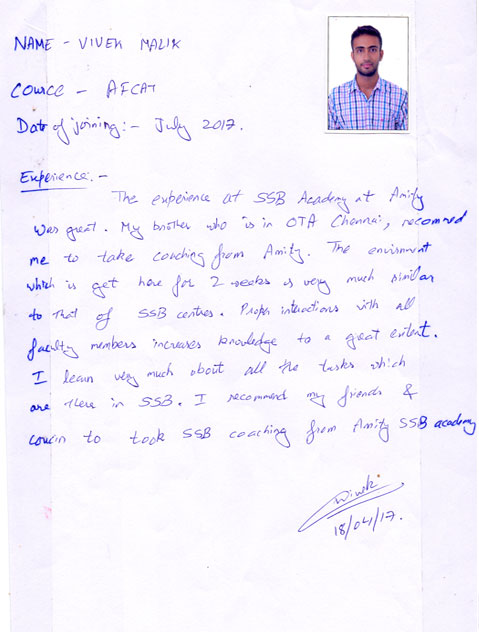 NAME - VIVEK MALIK
COURCE - AFCAT
Date of joining:- July 2017.
Experience:-
The experience at SSB Academy at Amity
was great. My brother who is in OTA Chennai, recommed
me to take coaching from Amity. The enviroment
which is get here for 2 weeks is very much similar
to that of SSB centres. Proper interactions with all
faculty members increases knowledge to a great extent.
I learn very much about all the tasks which
are there in SSB. I recommend my friends &
cousin to took SSB coaching from Amity SSB academy
18/04/17.